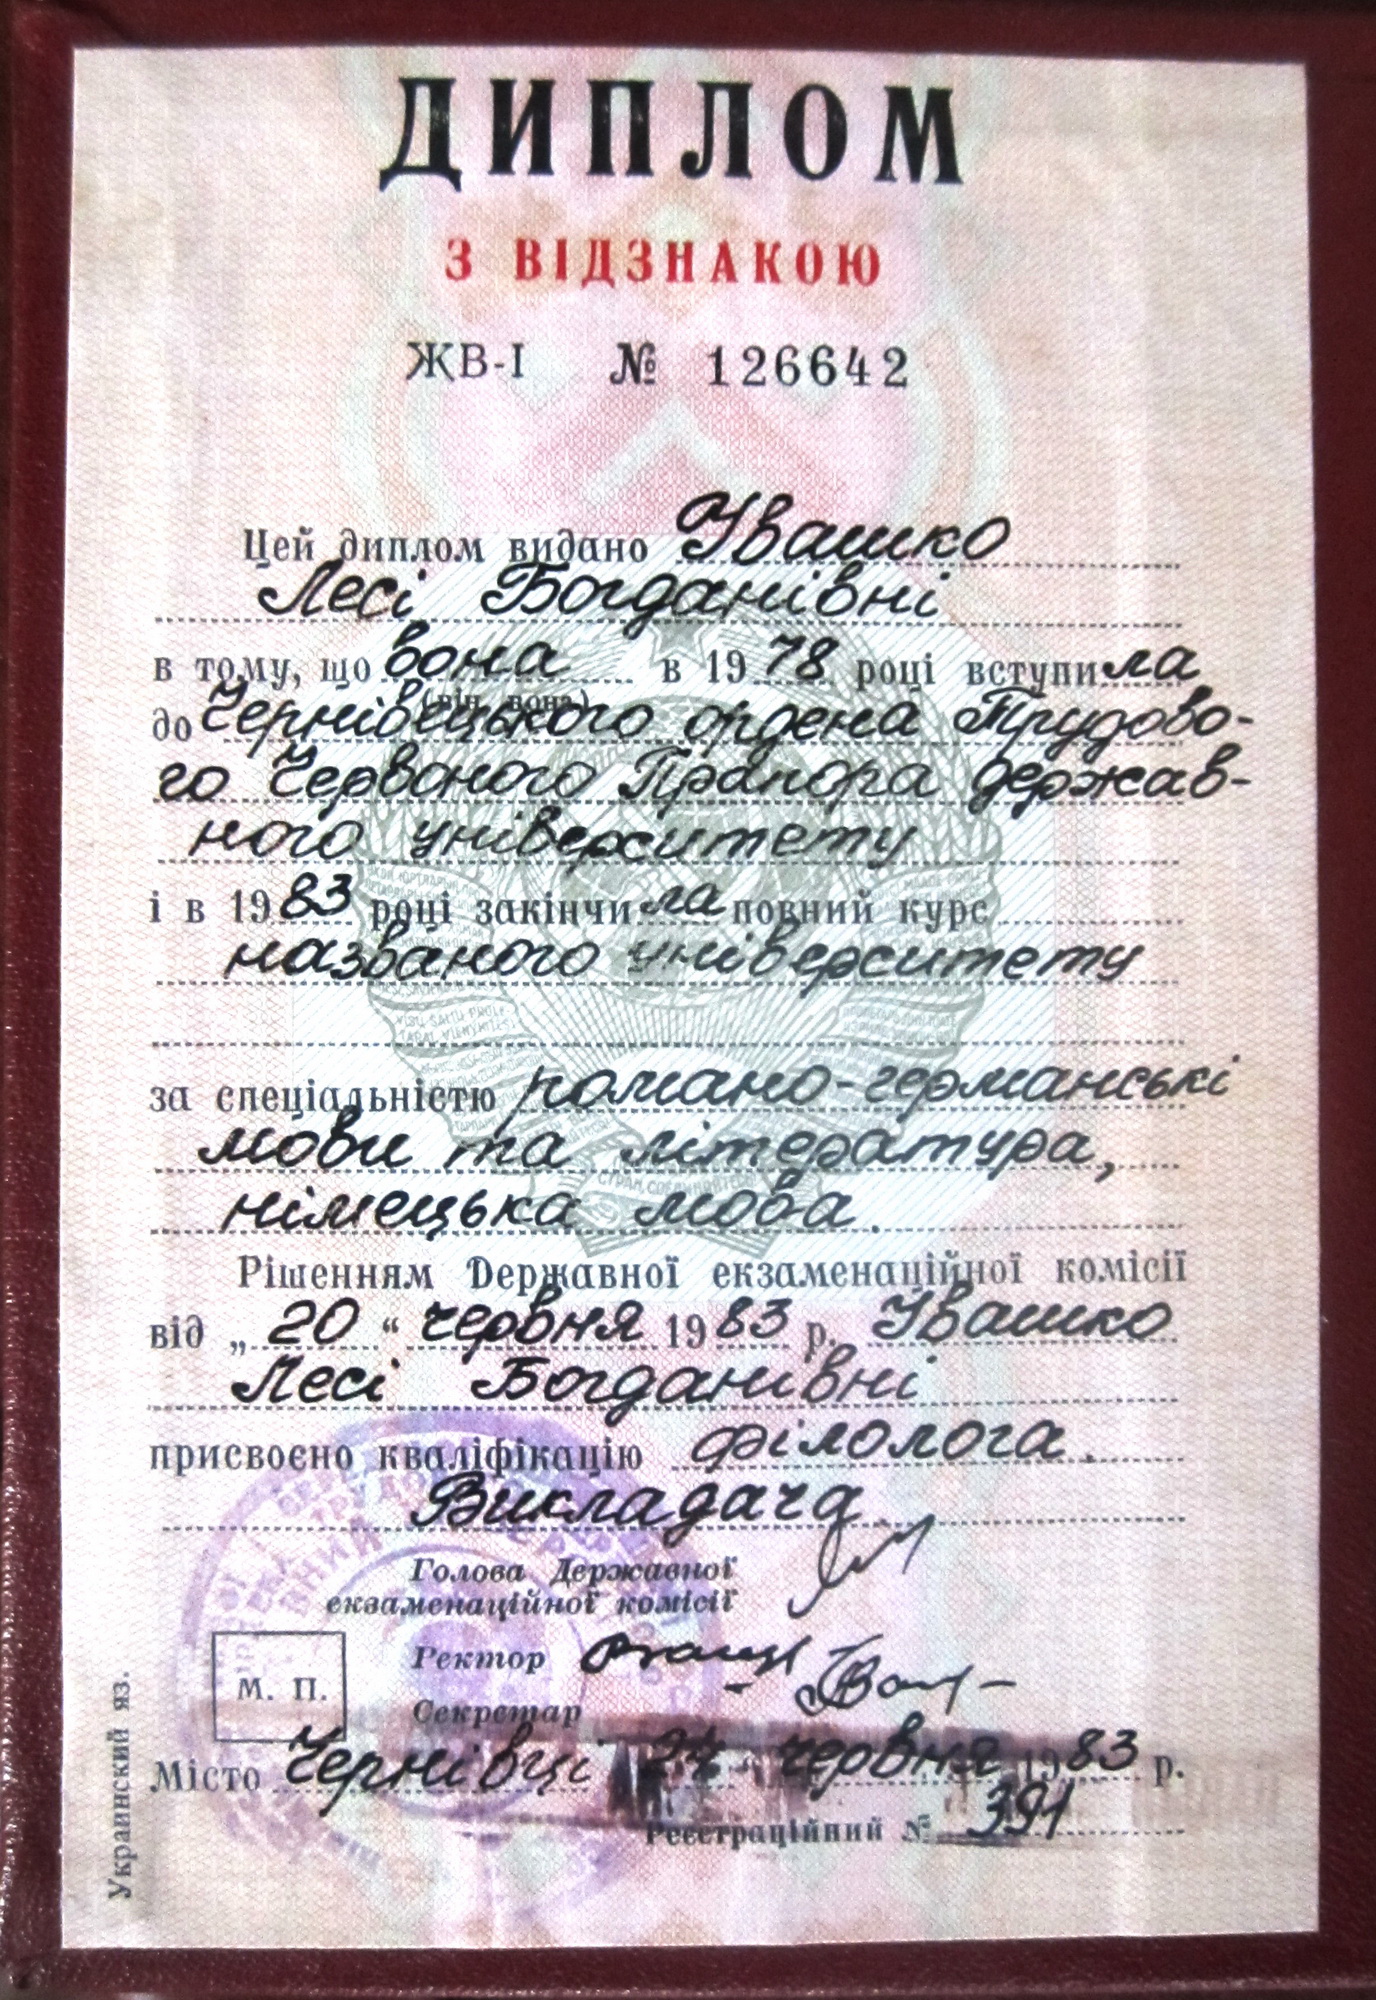 ДИПЛОМ
З ВІДЗНАКОЮ
ЖВ-І № 126642
Цей диплом видано Івашко
Лесі Богданівні
в тому, що вона в 1978 році вступила
(він, вона)
до Чернівецького ордена Трудово-
го Червоного Прапора держав-
ного університету
і в 1983 році закінчила повний курс
названого університету
за спеціальністю романо-германські
мови та література,
німецька мова.
Рішенням Державної екзаменаційної комісії
від „20“ червня 1983 р. Івашко
Лесі Богданівні
присвоєно кваліфікацію філолога.
Викладача
Голова Державної
екзаменаційної комісії
Ректор
М. П.
Секретар
Місто Чернівці 24 червня 1983 р.
Реєстраційний № 391
Украинский яз.